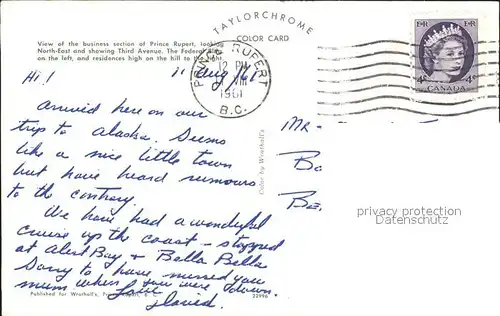 TAYLORCHROME
COLOR CARD
View of the business section of Prince Rupert, looking
North-East and showing Third Avenue. The Federal
on the left, and residences high on the hill to the right.
PRINCE RUPERT
12 PM
1961
B.C.
E II R E II R
4¢ 4¢
CANADA
Hi! 11 Aug/61
Arrived here on our
trip to Alaska. Seems
like a nice little town
but have heard rumours
to the contrary.
We have had a wonderful
cruise up the coast – stopped
at Alert Bay & Bella Bella
Sorry to have missed you
mum when you were down.
Love
David.
Mr -
Bo
Color by Wrathall's
privacy protection
Datenschutz
Published for Wrathall's, Prince Rupert, B. C.
22996